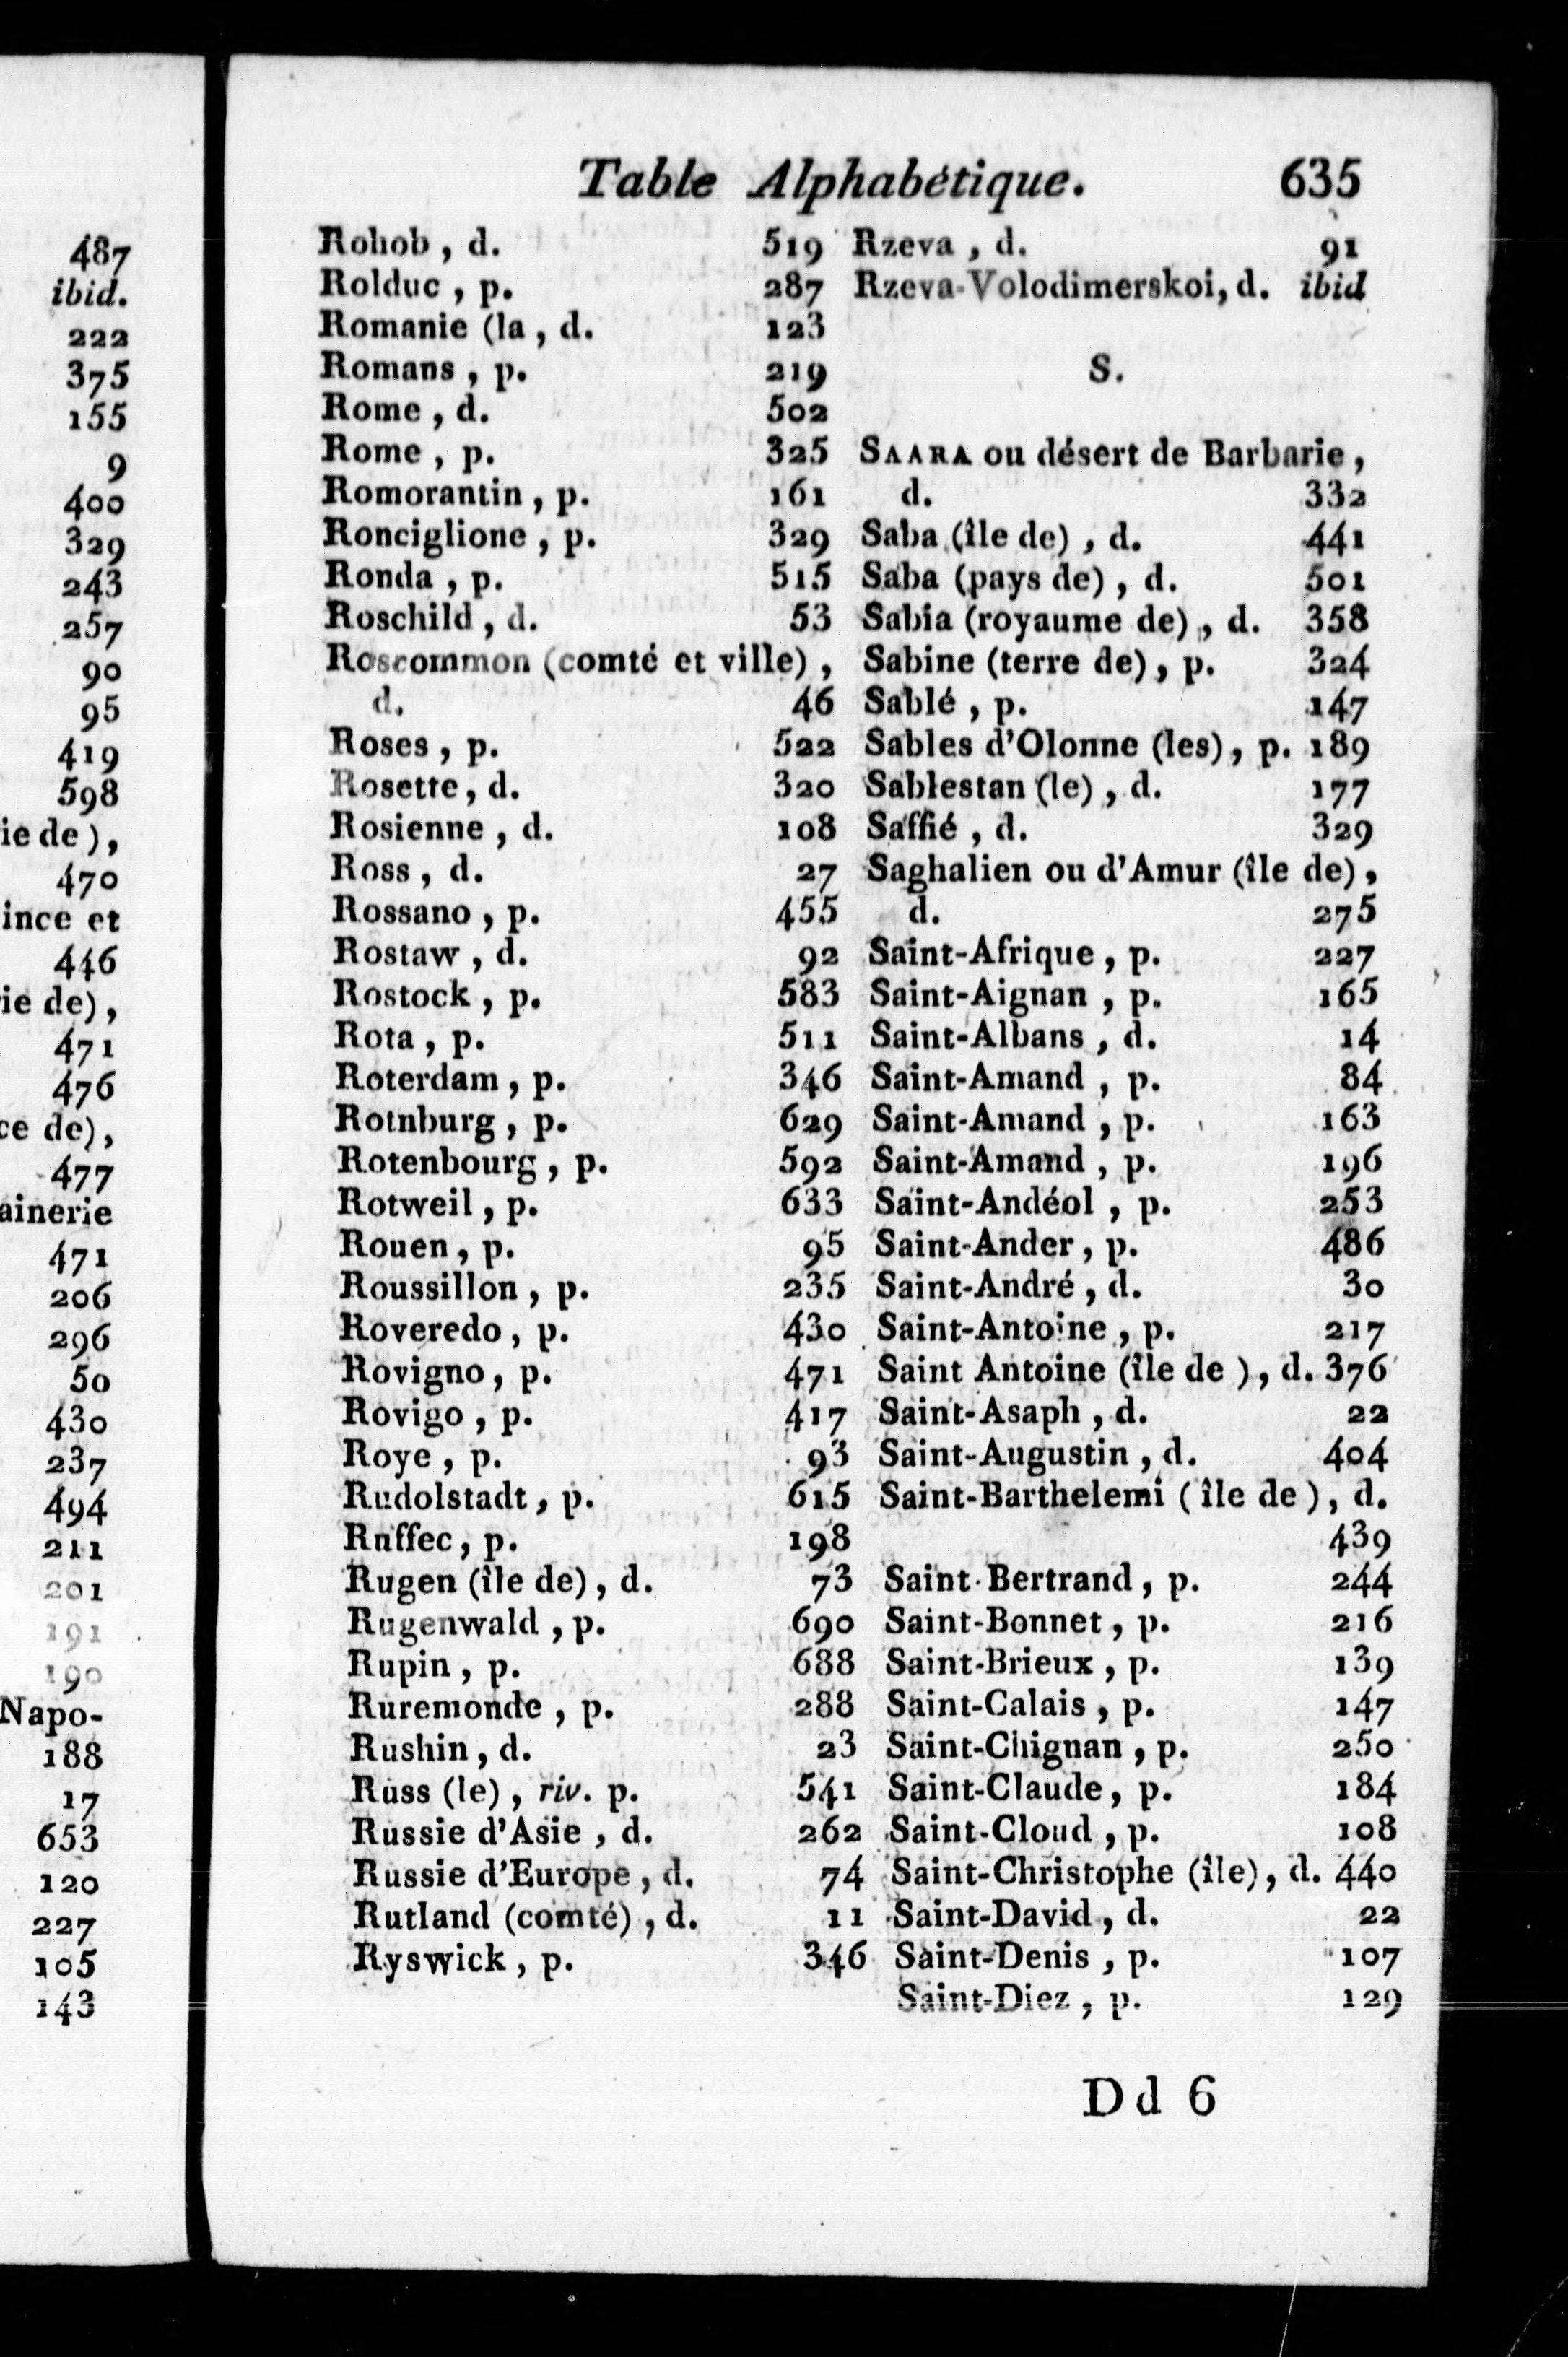 487
ibid.
222
375
155
9
400
329
243
257
90
95
419
598
ie de),
470
ince et
446
ie de),
471
476
ce de),
477
ainerie
471
206
296
50
430
237
494
211
201
191
190
Napo-
188
17
653
120
227
105
143
Table Alphabétique. 635
Rohob, d. 519
Rolduc, p. 287
Romanie (la, d. 123
Romans, p. 219
Rome, d. 502
Rome, p. 325
Romorantin, p. 161
Ronciglione, p. 329
Ronda, p. 515
Roschild, d. 53
Roscommon (comté et ville),
d. 46
Roses, p. 522
Rosette, d. 320
Rosienne, d. 108
Ross, d. 27
Rossano, p. 455
Rostaw, d. 92
Rostock, p. 583
Rota, p. 511
Roterdam, p. 346
Rotnburg, p. 629
Rotenbourg, p. 592
Rotweil, p. 633
Rouen, p. 95
Roussillon, p. 235
Roveredo, p. 430
Rovigno, p. 471
Rovigo, p. 417
Roye, p. 93
Rudolstadt, p. 615
Ruffec, p. 198
Rugen (île de), d. 73
Rugenwald, p. 690
Rupin, p. 688
Ruremonde, p. 288
Rushin, d. 23
Russ (le), riv. p. 541
Russie d'Asie, d. 262
Russie d'Europe, d. 74
Rutland (comté), d. 11
Ryswick, p. 346
Rzeva, d. 91
Rzeva-Volodimerskoi, d. ibid
S.
SAARA ou désert de Barbarie,
d. 332
Saba (île de), d. 441
Saba (pays de), d. 501
Sabia (royaume de), d. 358
Sabine (terre de), p. 324
Sablé, p. 147
Sables d'Olonne (les), p. 189
Sablestan (le), d. 177
Saffié, d. 329
Saghalien ou d'Amur (île de),
d. 275
Saint-Afrique, p. 227
Saint-Aignan, p. 165
Saint-Albans, d. 14
Saint-Amand, p. 84
Saint-Amand, p. 163
Saint-Amand, p. 196
Saint-Andéol, p. 253
Saint-Ander, p. 486
Saint-André, d. 30
Saint-Antoine, p. 217
Saint Antoine (île de), d. 376
Saint-Asaph, d. 22
Saint-Augustin, d. 404
Saint-Barthelemi (île de), d.
439
Saint-Bertrand, p. 244
Saint-Bonnet, p. 216
Saint-Brieux, p. 139
Saint-Calais, p. 147
Saint-Chignan, p. 250
Saint-Claude, p. 184
Saint-Cloud, p. 108
Saint-Christophe (île), d. 440
Saint-David, d. 22
Saint-Denis, p. 107
Saint-Diez, p. 129
Dd 6